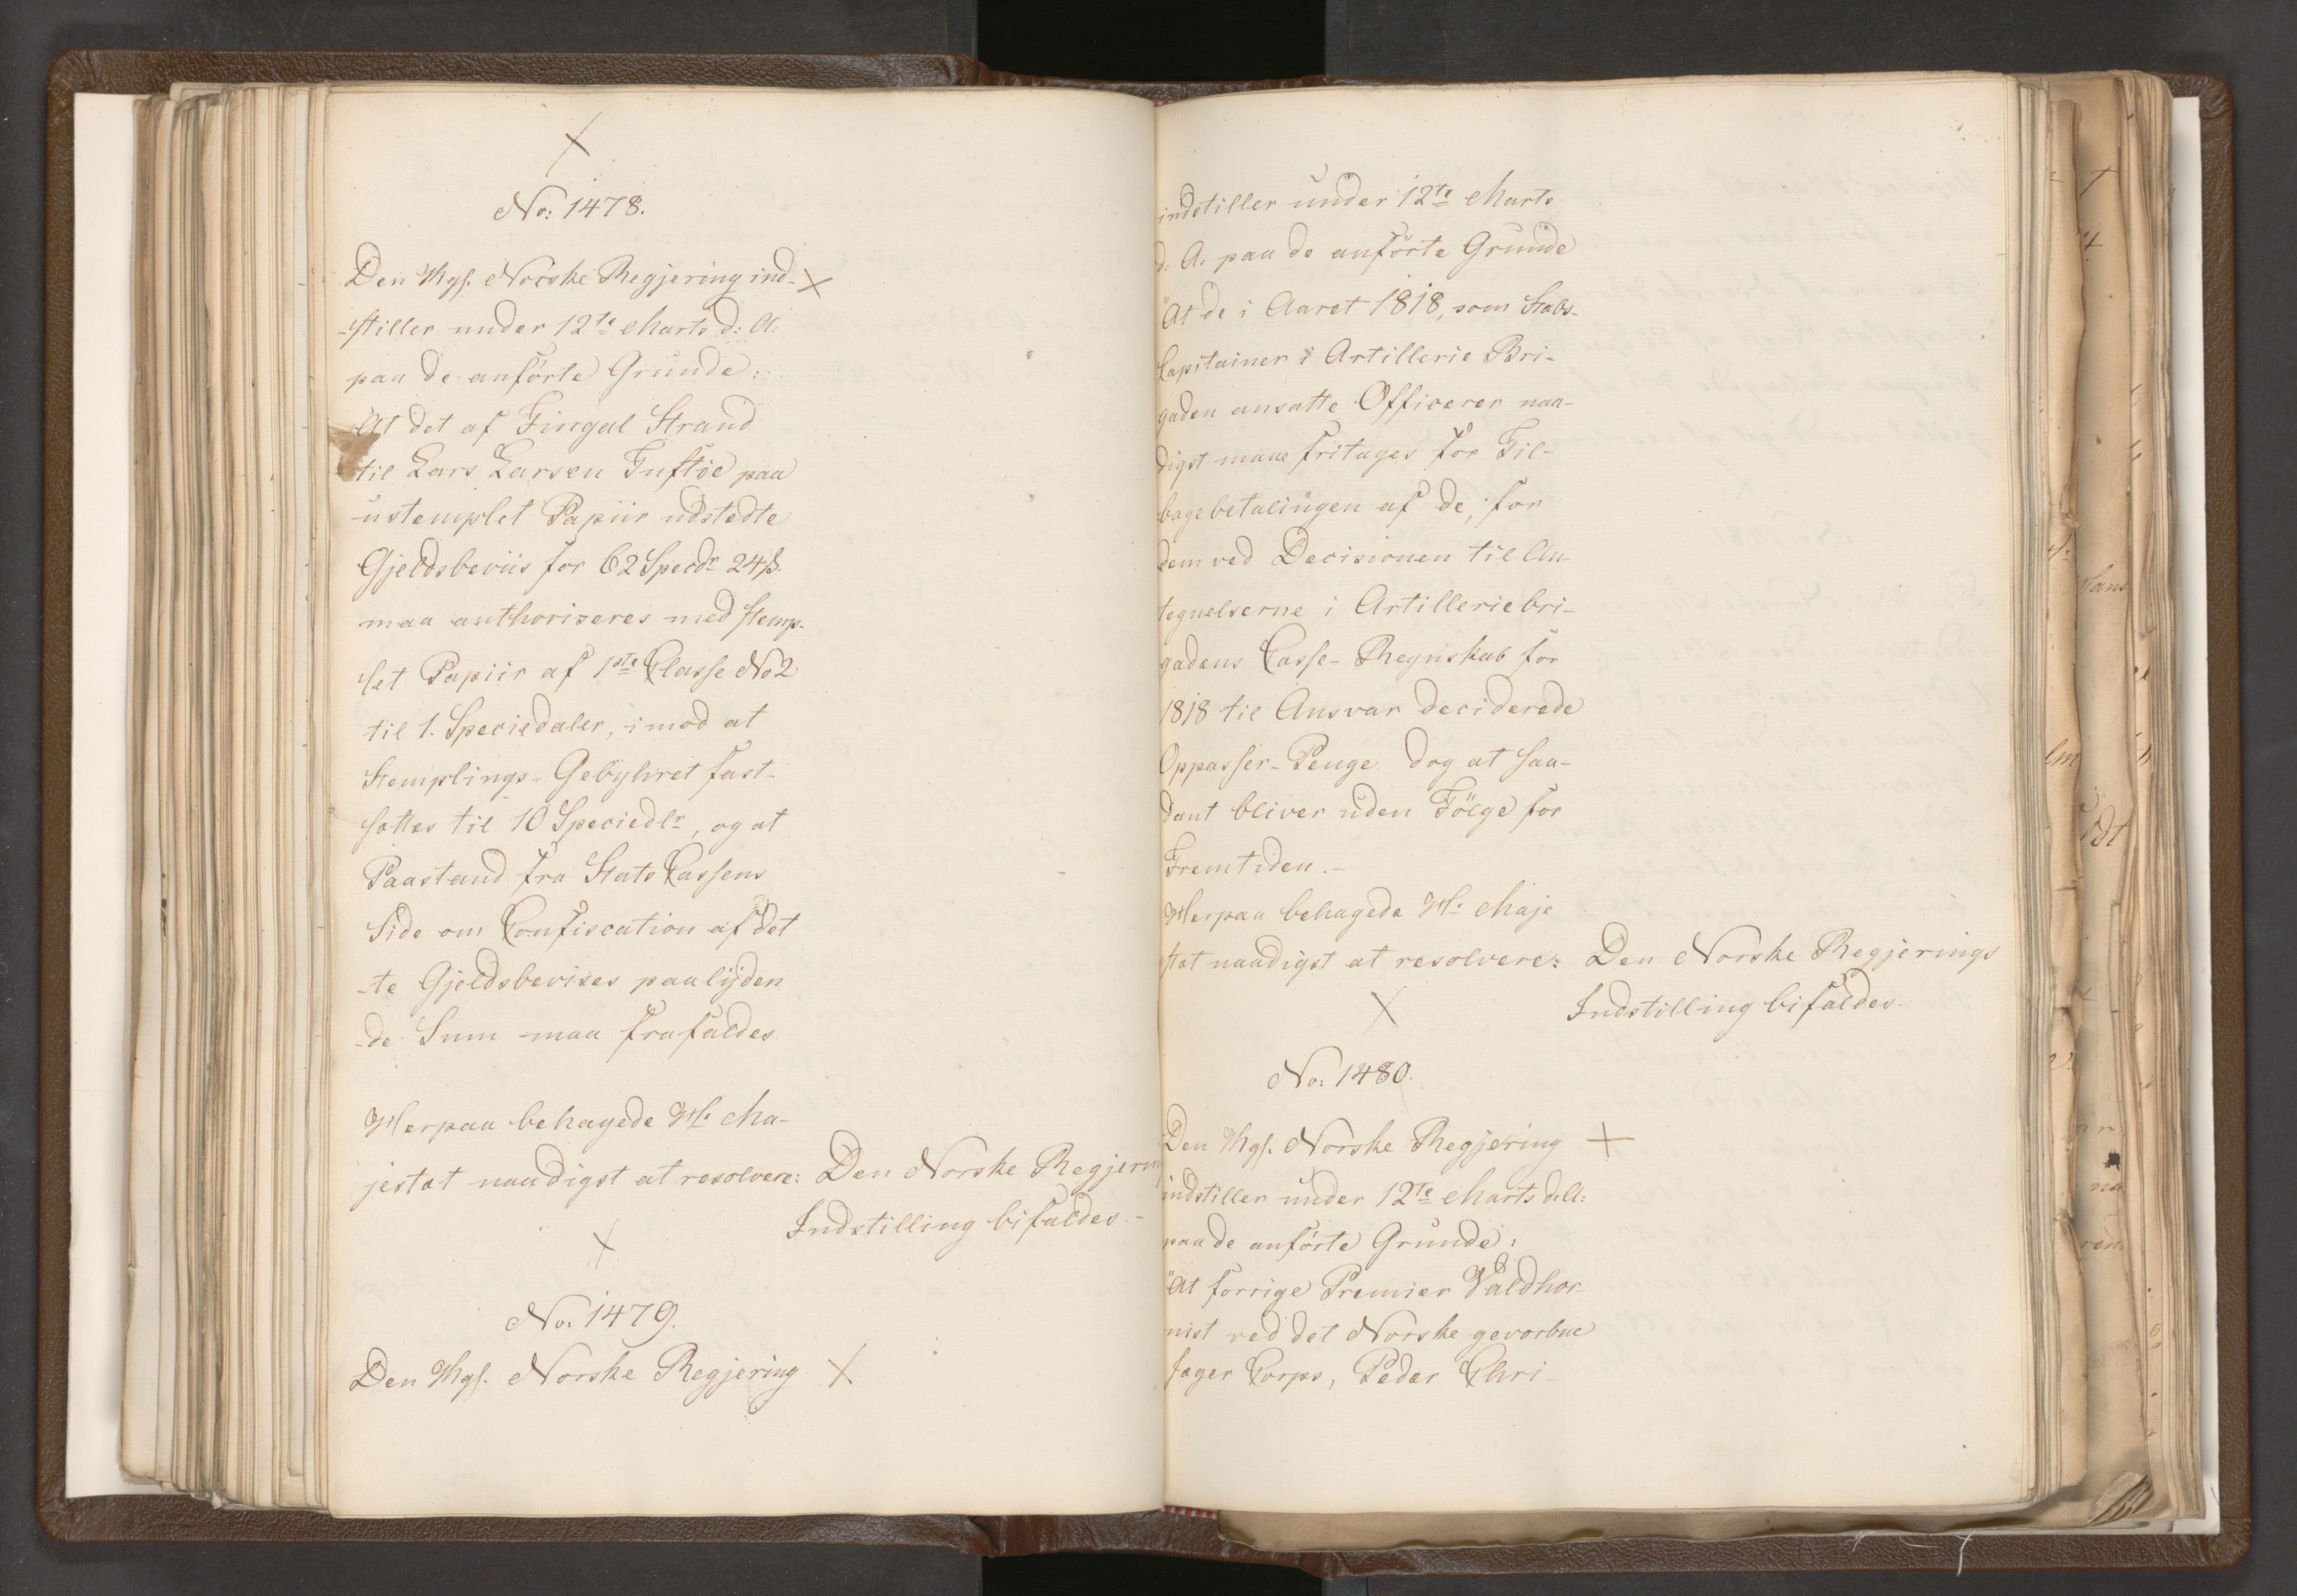 No: 1478.
Den Kgs. Norske Regjering ind-
-stiller under 12te Marts d: A:
paa de anförte Grunde:
"At det af Fingal Strand
til Lars Larsen Tuftöe paa
ustemplet Papiir udstedte
Gjeldsbeviis for 62 Specdr 24 ß.
maa authoriseres med stemp-
let Papiir af 1ste Classe No 2
til 1. Speciedaler, imod at
Stemplings-Gebyhret fast-
sættes til 10 Speciedlr, og at
Paastand fra Stats Cassens
Side om Confiscation af det
-te Gjeldsbevises paalÿden
-de Sum maa frafaldes
Herpaa behagede Hs Ma-
jestæt naadigst at resolvere: Den Norske Regjering
Indstilling bifaldes.-
No. 1479.
Den Kgs. Norske Regjering
indstiller under 12te Marts
d: A: paa de anförte Grunde
"At de i Aaret 1818, som Stabs-
Capitainer i Artillerie Bri-
gaden ansatte Officerer naa-
digst maae fritages for Til-
bagebetalingen af de, for
dem ved Decisionen til An-
tegnelserne i Artilleriebri-
gadens Casse-Regnskab for
1818 til Ansvar deciderede
Oppasser-Penge dog at saa-
dant bliver uden Fölge for
Fremtiden.-
Herpaa behagede Hs Maje
stæt naadigst at resolvere: Den Norske Regjerings
Indstilling bifaldes.
No: 1480.
Den Kgs. Norske Regjering
indstiller under 12te Marts d: A:
paa de anförte Grunde:
"At forrige Premier Valdhor-
nist ved det Norske gevorbne
Jæger Corps, Peder Chri-